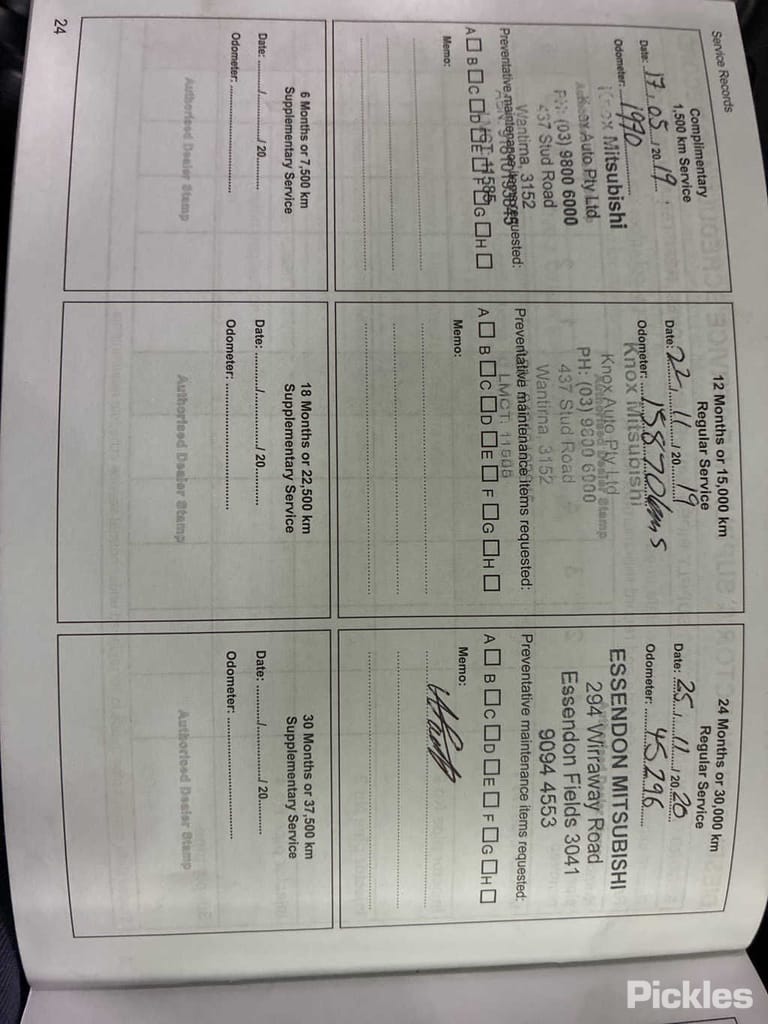 Service Records
Complimentary
1,500 km Service
Date: 17 / 05 / 20 19
Odometer: 1970
Knox Mitsubishi
Knox Auto Pty Ltd
PH: (03) 9800 6000
437 Stud Road
Wantirna, 3152
Preventative maintenance items requested:
LMCT 11585
A B C D E F G H
Memo:
12 Months or 15,000 km
Regular Service
Date: 22 / 11 / 20 19
Odometer: 15870kms
Knox Mitsubishi
Authorised Dealer Stamp
Knox Auto Pty Ltd
PH: (03) 9800 6000
437 Stud Road
Wantirna, 3152
Preventative maintenance items requested:
LMCT: 11585
A B C D E F G H
Memo:
24 Months or 30,000 km
Regular Service
Date: 25 / 11 / 20 20
Odometer: 45,296
ESSENDON MITSUBISHI
294 Wirraway Road
Essendon Fields 3041
9094 4553
Preventative maintenance items requested:
A B C D E F G H
Memo:
6 Months or 7,500 km
Supplementary Service
Date: ........../........../ 20..........
Odometer: ..............................
Authorised Dealer Stamp
18 Months or 22,500 km
Supplementary Service
Date: ........../........../ 20..........
Odometer: ..............................
Authorised Dealer Stamp
30 Months or 37,500 km
Supplementary Service
Date: ........../........../ 20..........
Odometer: ..............................
Authorised Dealer Stamp
24
Pickles